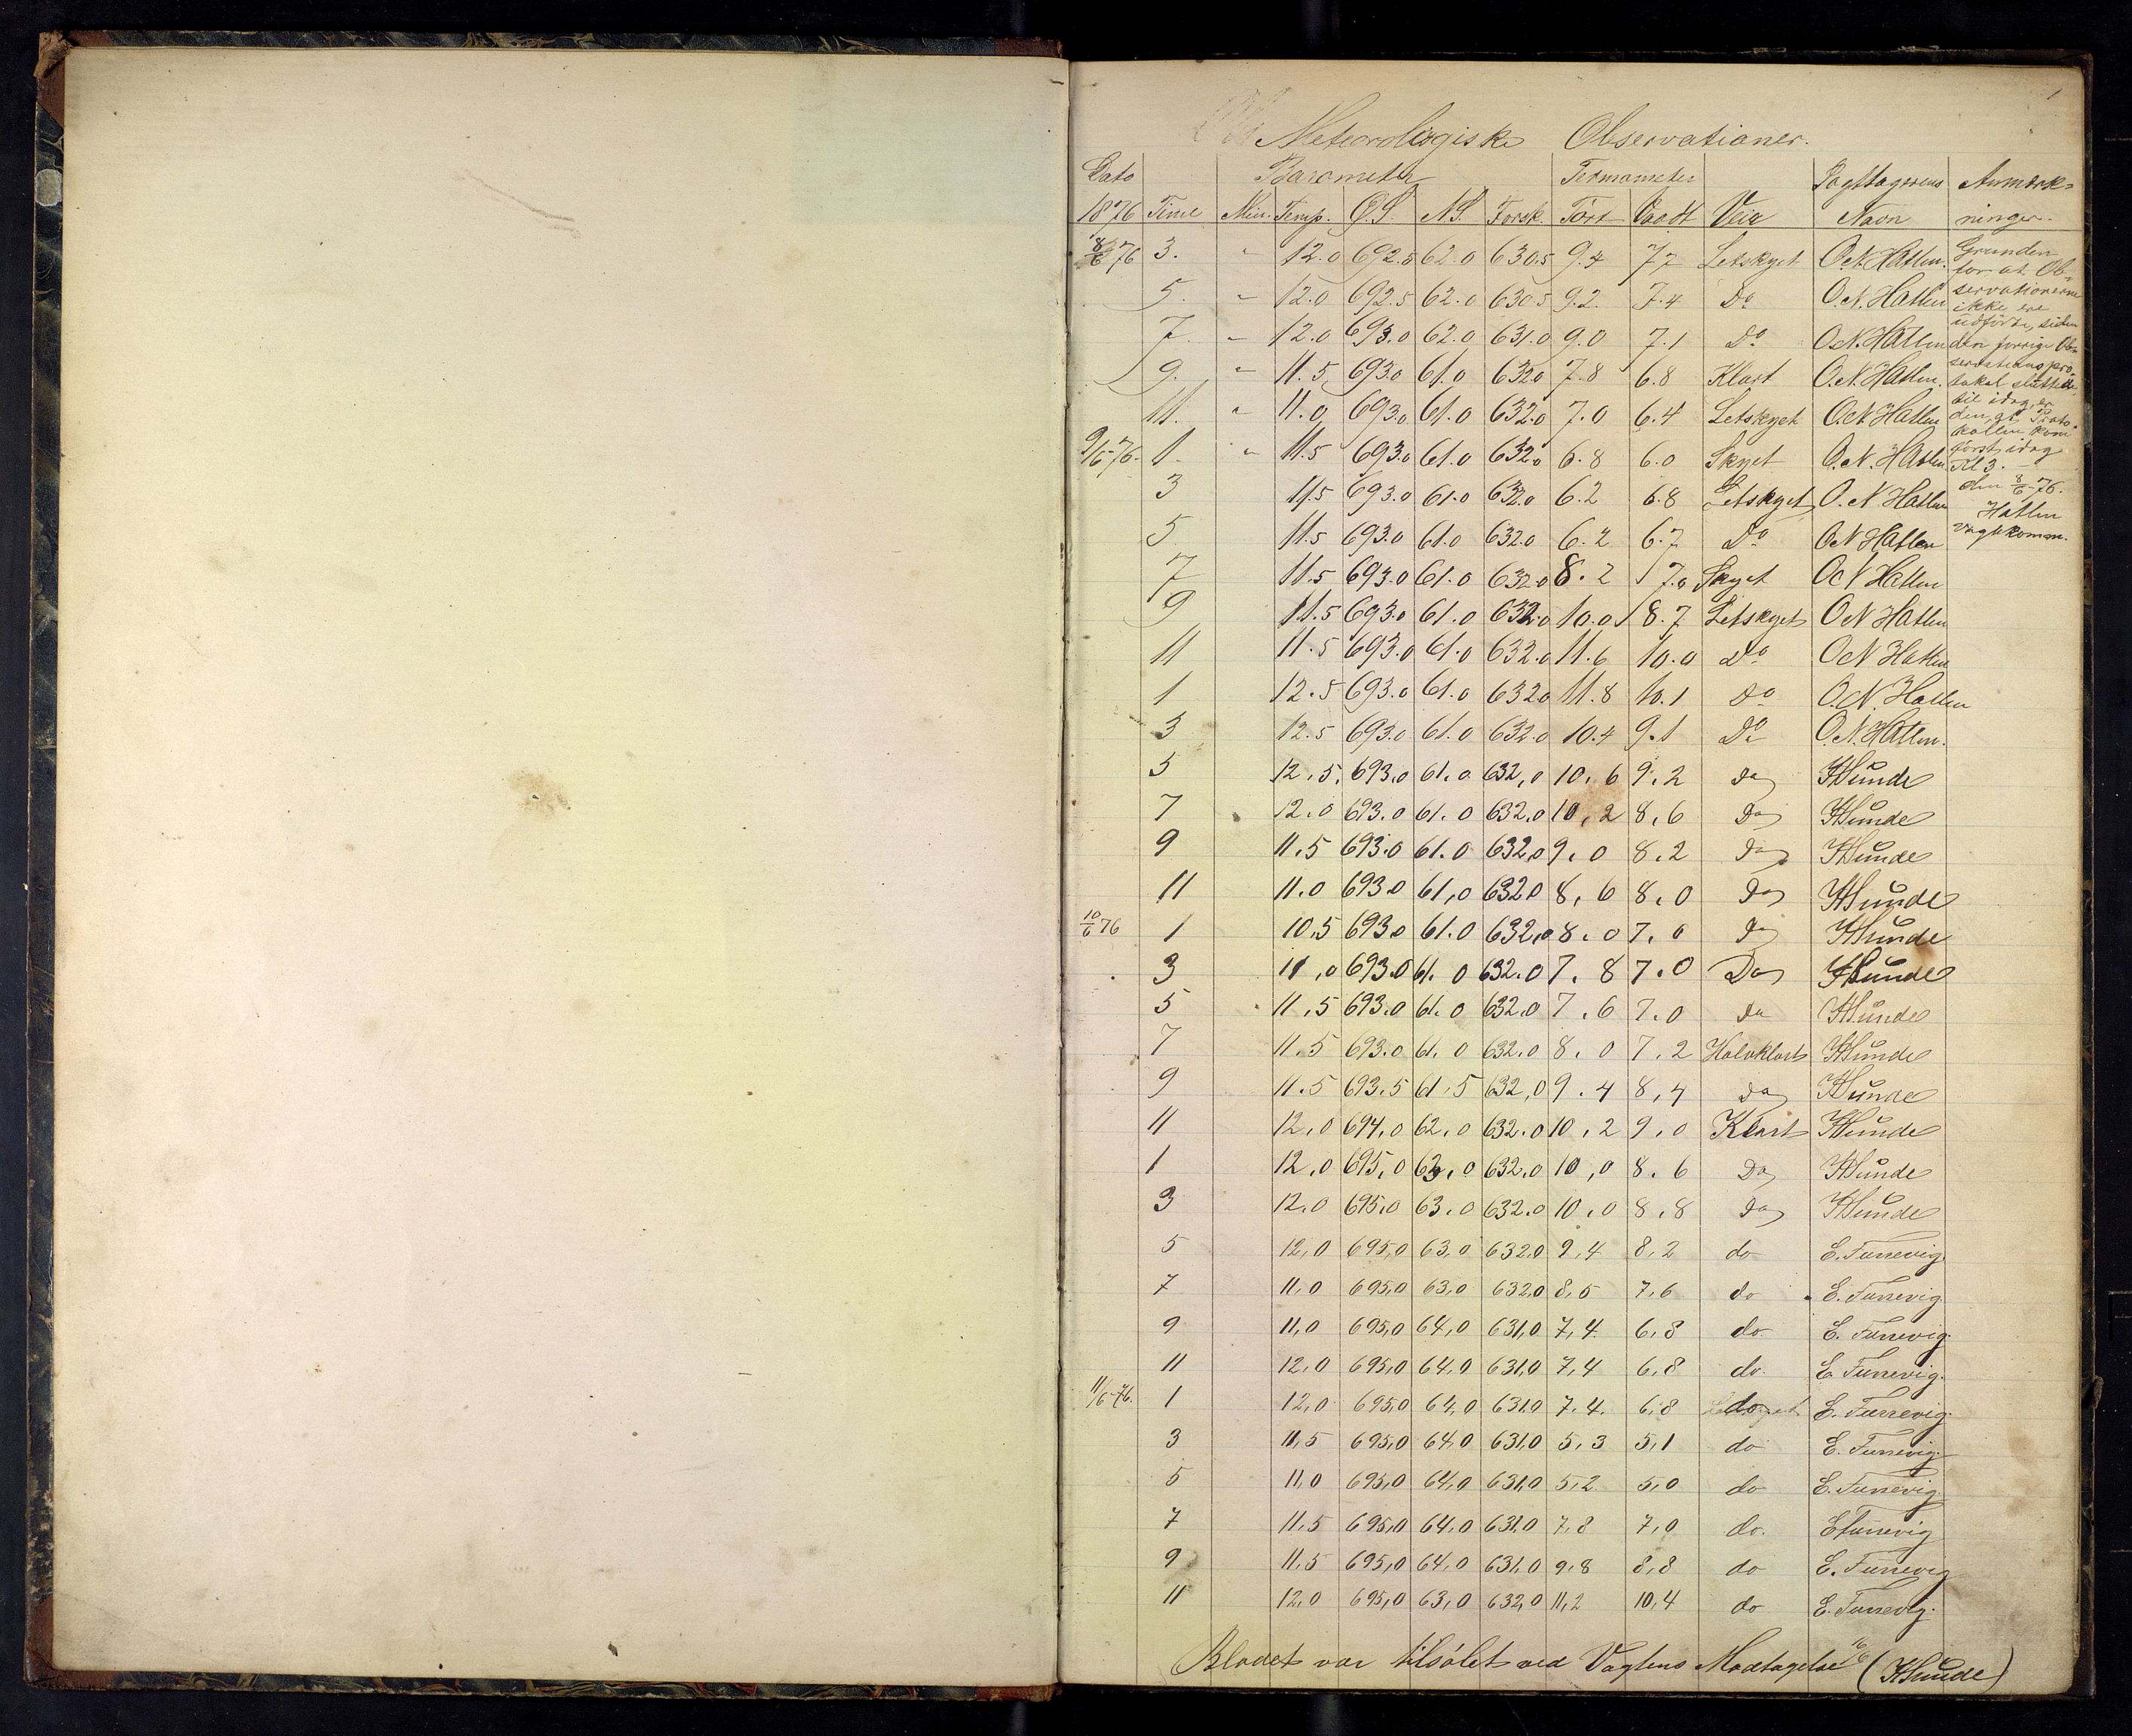 1
Meteorologiske Observationer.
Dato Barometer Termometer Iagttagerens Anmærk-
1876 Time Min. Temp. Ø.S. N.S. Forsk. Tört Vaadt Veir Navn ninger.
8/6 76 3. " 12.0 692.5 62.0 630.5 9.4 7.7 Letskyet O.N. Hatlen.
5. " 12.0 692.5 62.0 630.5 9.2. 7.4 Do O.N. Hatlen
7. " 12.0 693.0 62.0 631.0 9.0 7.1 Do O.N. Hatlen
9. " 11.5 693.0 61.0 632.0 7.8 6.8 Klart O.N. Hatlen.
11. " 11.0 693.0 61.0 632.0 7.0 6.4 Letskyet O.N. Hatlen
9/6 76. 1. " 11.5 693.0 61.0 632.0 6.8 6.0 Skyet O.N. Hatlen
3 11.5 693.0 61.0 632.0 6.2 6.8 Letskyet O.N. Hatlen
5 11.5 693.0 61.0 632.0 6.2 6.7 Do O.N. Hatlen
7 11.5 693.0 61.0 632.0 8.2 7.0 Skyet O.N. Hatlen
9 11.5 693.0 61.0 632.0 10.0 8.7 Letskyet O.N. Hatlen
11 11.5 693.0 61.0 632.0 11.6 10.0 Do O.N. Hatlen
1 12.5 693.0 61.0 632.0 11.8 10.1 Do O.N. Hatlen
3 12.5 693.0 61.0 632.0 10.4 9.1 Do O.N. Hatlen.
Grunden
for at Ob-
servationerne
ikke ere
udförte, siden
den forrige Ob-
servationspro-
tokol sluttede
til idag, er
den, at Proto-
kollen kom
först idag
Kl 3.
den 8/6 - 76.
Hatlen
Vagtkomm.
5 12,5. 693,0 61,0 632,0 10,6 9,2 Do HSunde
7 12.0 693.0 61.0 632.0 10,2 8,6 Do HSunde
9 11.5 693.0 61.0 632,0 9.0 8.2 Do HSunde
11 11.0 693.0 61,0 632.0 8,6 8,0 Do HSunde
10/6 76 1 10.5 693.0 61.0 632,0 8.0 7.0 Do HSunde
3 11,0 693.0 61.0 632.0 7.8 7.0 Do HSunde
5 11,5 693.0 61.0 632.0 7.6 7.0 Do HSunde
7 11.5 693.0 61.0 632.0 8.0 7.2 Halvklart HSunde
9 11.5 693.5 61.5 632,0 9.4 8,4 Do HSunde
11 12,0 694,0 62,0 632.0 10,2 9,0 Klart HSunde
1 12,0 695,0 63,0 632.0 10,0 8.6 Do HSunde
3 12.0 695.0 63.0 632.0 10.0 8.8 Do HSunde
5 12,0 695,0 63,0 632,0 9,4 8,2 do E. Furrevig.
7 11,0 695,0 63,0 632,0 8,5 7,6 do E. Furrevig.
9 11,0 695,0 64,0 631,0 7,4 6,8 do. E. Furrevig.
11 12,0 695,0 64,0 631,0 7,4 6,8 do. E. Furrevig.
11/6-76. 1 12,0 695,0 64,0 631,0 7.4. 6,8 do E. Furrevig.
3 11,5 695,0 64,0 631,0 5,3 5,1 do E. Furrevig.
5 11,0 695,0 64,0 631,0 5,2 5,0 do E. Furrevig.
7 11,5 695,0 64,0 631,0 7,8 7,0 do. E Furrevig
9 11,5 695,0 64,0 631,0 9,8 8,8 do E. Furrevig
11 12,0 695,0 63,0 632,0 11,2 10,4 do E. Furrevig.
Bladet var tilsölet ved Vagtens Modtagelse 16/6 (HSunde)